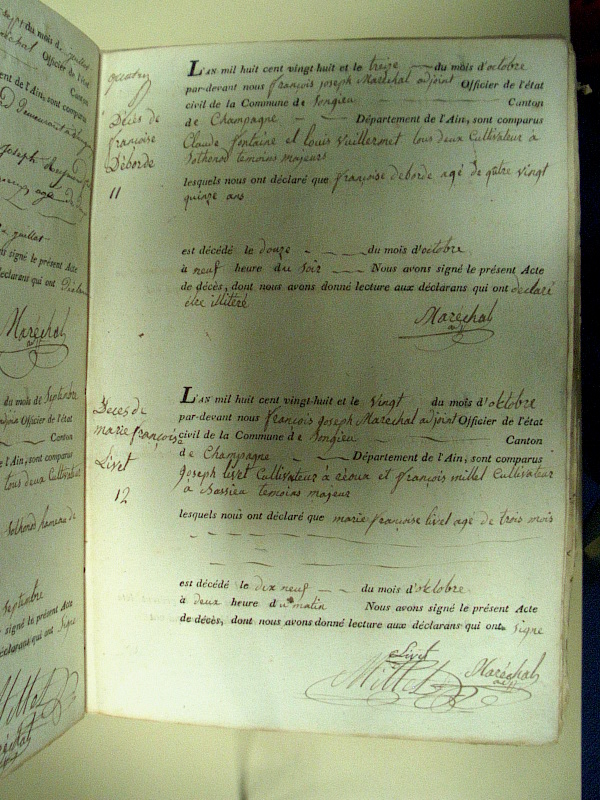 sept du mois de juillet
Maréchal Officier de l'état
Canton
de l'Ain, sont comparus
Joseph
agé de
juillet
ons signé le présent Acte
déclarans qui ont Déclaré
Maréchal
adj
du mois de Septembre
adjoint Officier de l'état
Canton
de l'Ain, sont comparus
tous deux Cultivateur
Sothonod hameau de
Septembre
signé le présent Acte
déclarans qui ont Signé
Millet
Maréchal
adj
Décès de
françoise
Déborde
11
L'AN mil huit cent vingt-huit et le treize du mois d'octobre
par-devant nous françois joseph Maréchal adjoint Officier de l'état
civil de la Commune de Songieu Canton
de Champagne Département de l'Ain, sont comparus
Claude fontaine et louis Vuillermet tous deux Cultivateur à
Sothonod temoins majeurs
lesquels nous ont déclaré que françoise deborde agé de qutre vingt
quinze ans
est décédé le douze du mois d'octobre
à neuf heure du soir Nous avons signé le présent Acte
de décès, dont nous avons donné lecture aux déclarans qui ont declaré
étre illitéré
Maréchal
adj
Décès de
marie françoise
Livet
12
L'AN mil huit cent vingt-huit et le Vingt du mois d'oktobre
par-devant nous françois Joseph Maréchal adjoint Officier de l'état
civil de la Commune de Songieu Canton
de Champagne Département de l'Ain, sont comparus
joseph livet Cultivateur à et françois millet Cultivateur
à Bassieu temoins majeur
lesquels nous ont déclaré que marie françoise livet agé de trois mois
est décédé le dix neuf du mois d'oktobre
à deux heure du matin Nous avons signé le présent Acte
de décès, dont nous avons donné lecture aux déclarans qui ont signé
Livet
Millet Maréchal
adj